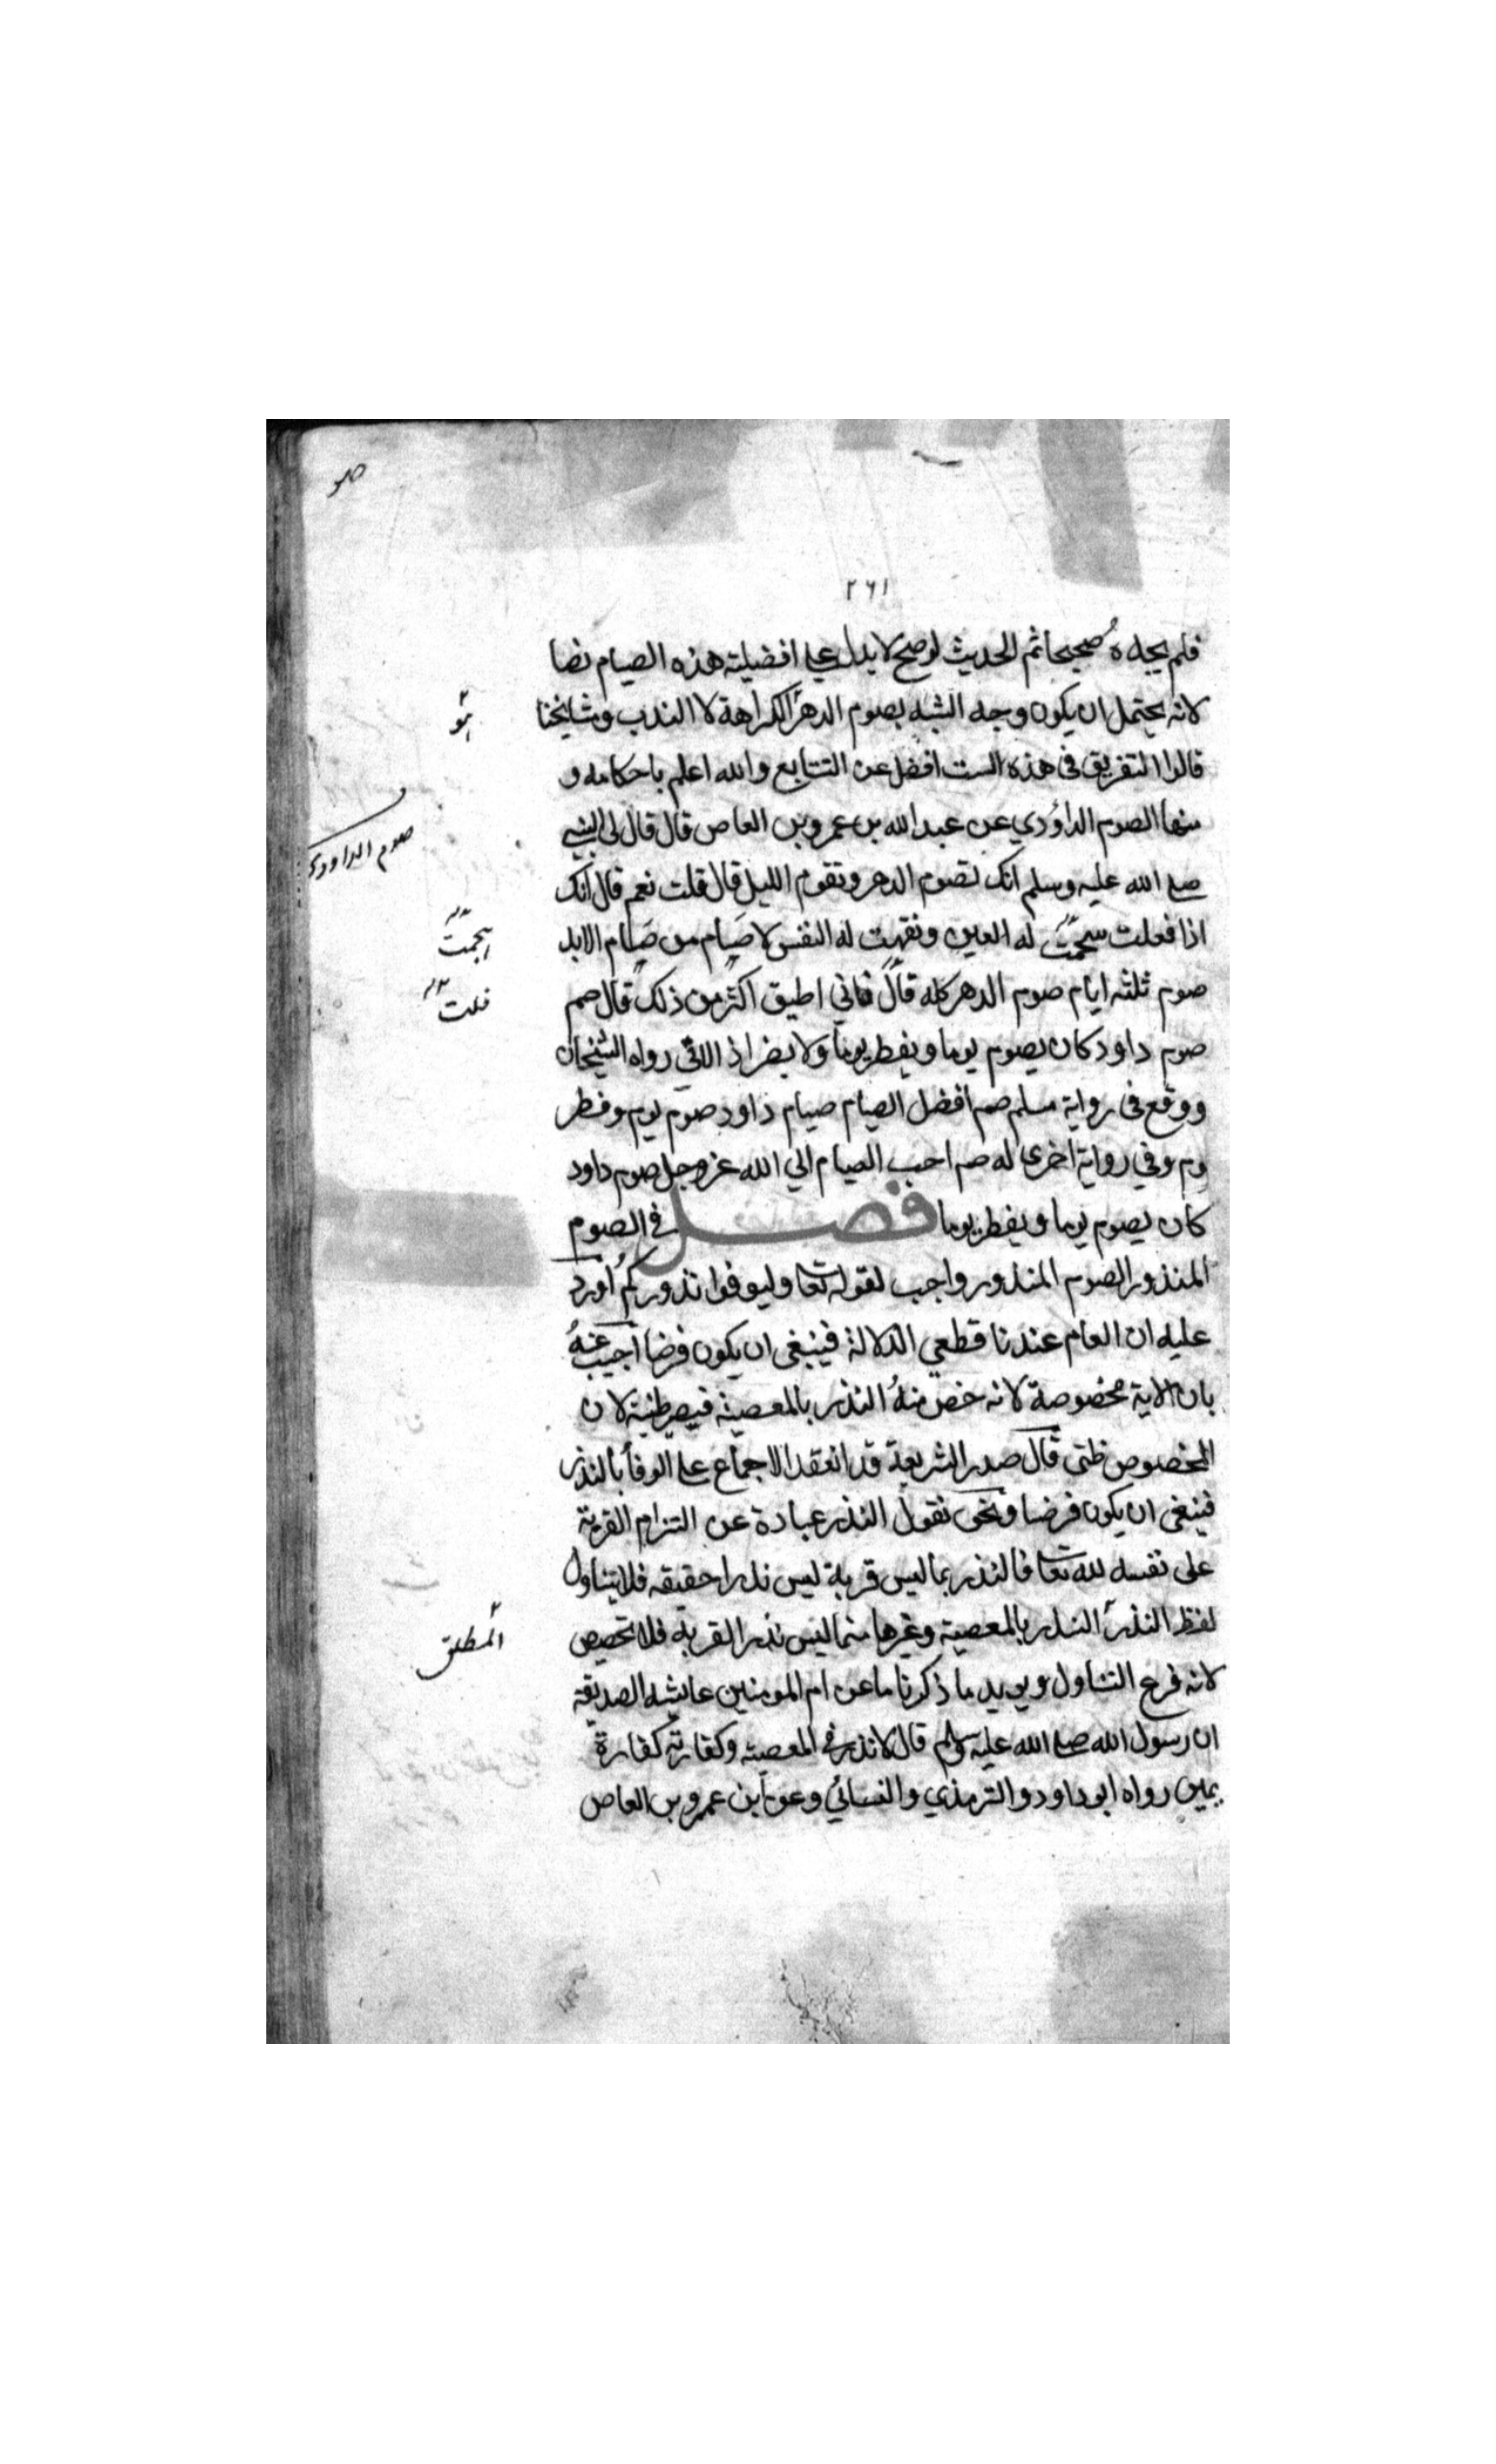 صو
٢٦١
فلم يجده صحيحا ثم الحديث لو صح لا يدل على افضلية هذه الصيام نصا
لانه يحتمل ان يكون وجه الشبه بصوم الدهر الكراهة لا الندب ومشايخنا
هو
قالوا التفريق فى هذه الست افضل عن التتابع والله اعلم باحكامه و
منها الصوم الداؤدي عن عبد الله بن عمرو بن العاص قال قال لى النبي
صوم الداودي
صلى الله عليه وسلم انك لتصوم الدهر وتقوم الليل قال قلت نعم قال انك
اذا فعلت هجمت له العين ونقهت له النفس لا صيام من صيام الابد
هجمت
صوم ثلثه ايام صوم الدهر كله قال فاني اطيق اكثر من ذلك قال صم
قلت
صوم داود كان يصوم يوما ويفطر يوما ولا يفر اذا لاقى رواه الشيخان
ووقع فى رواية مسلم صم افضل الصيام صيام داود صوم يوم وفطر
يوم وفي رواية اخرى له صم احب الصيام الي الله عز وجل صوم داود
كان يصوم يوما ويفطر يوما فصل في الصوم
المنذور الصوم المنذور واجب لقوله تعا وليوفوا نذوركم اورد
عليه ان العام عندنا قطعي الدلالة فينبغى ان يكون فرضا اجيب عنه
بان الاية مخصوصة لانه خص منه النذر بالمعصية فيصير ظنية لان
المخصوص ظنى قال صدر الشريعة قد انعقد الاجماع على الوفأ بالنذر
فينبغى ان يكون فرضا ونحن نقول النذر عبادة عن التزام القربة
على نفسه لله تعا فالنذر بما ليس قربة ليس نذرا حقيقه فلا يتناول
لفظ النذر النذر بالمعصية وغيرها مما ليس نذر القربة فلا تخصيص
المطلق
لانه فرع التناول ويويد ما ذكرنا ما عن ام المومنين عايشه الصديقة
ان رسول الله صلى الله عليه وسلم قال لا نذر فى المعصية وكفارته كفارة
يمين رواه ابو داود والترمذي والنسائي وعن ابن عمرو بن العاص